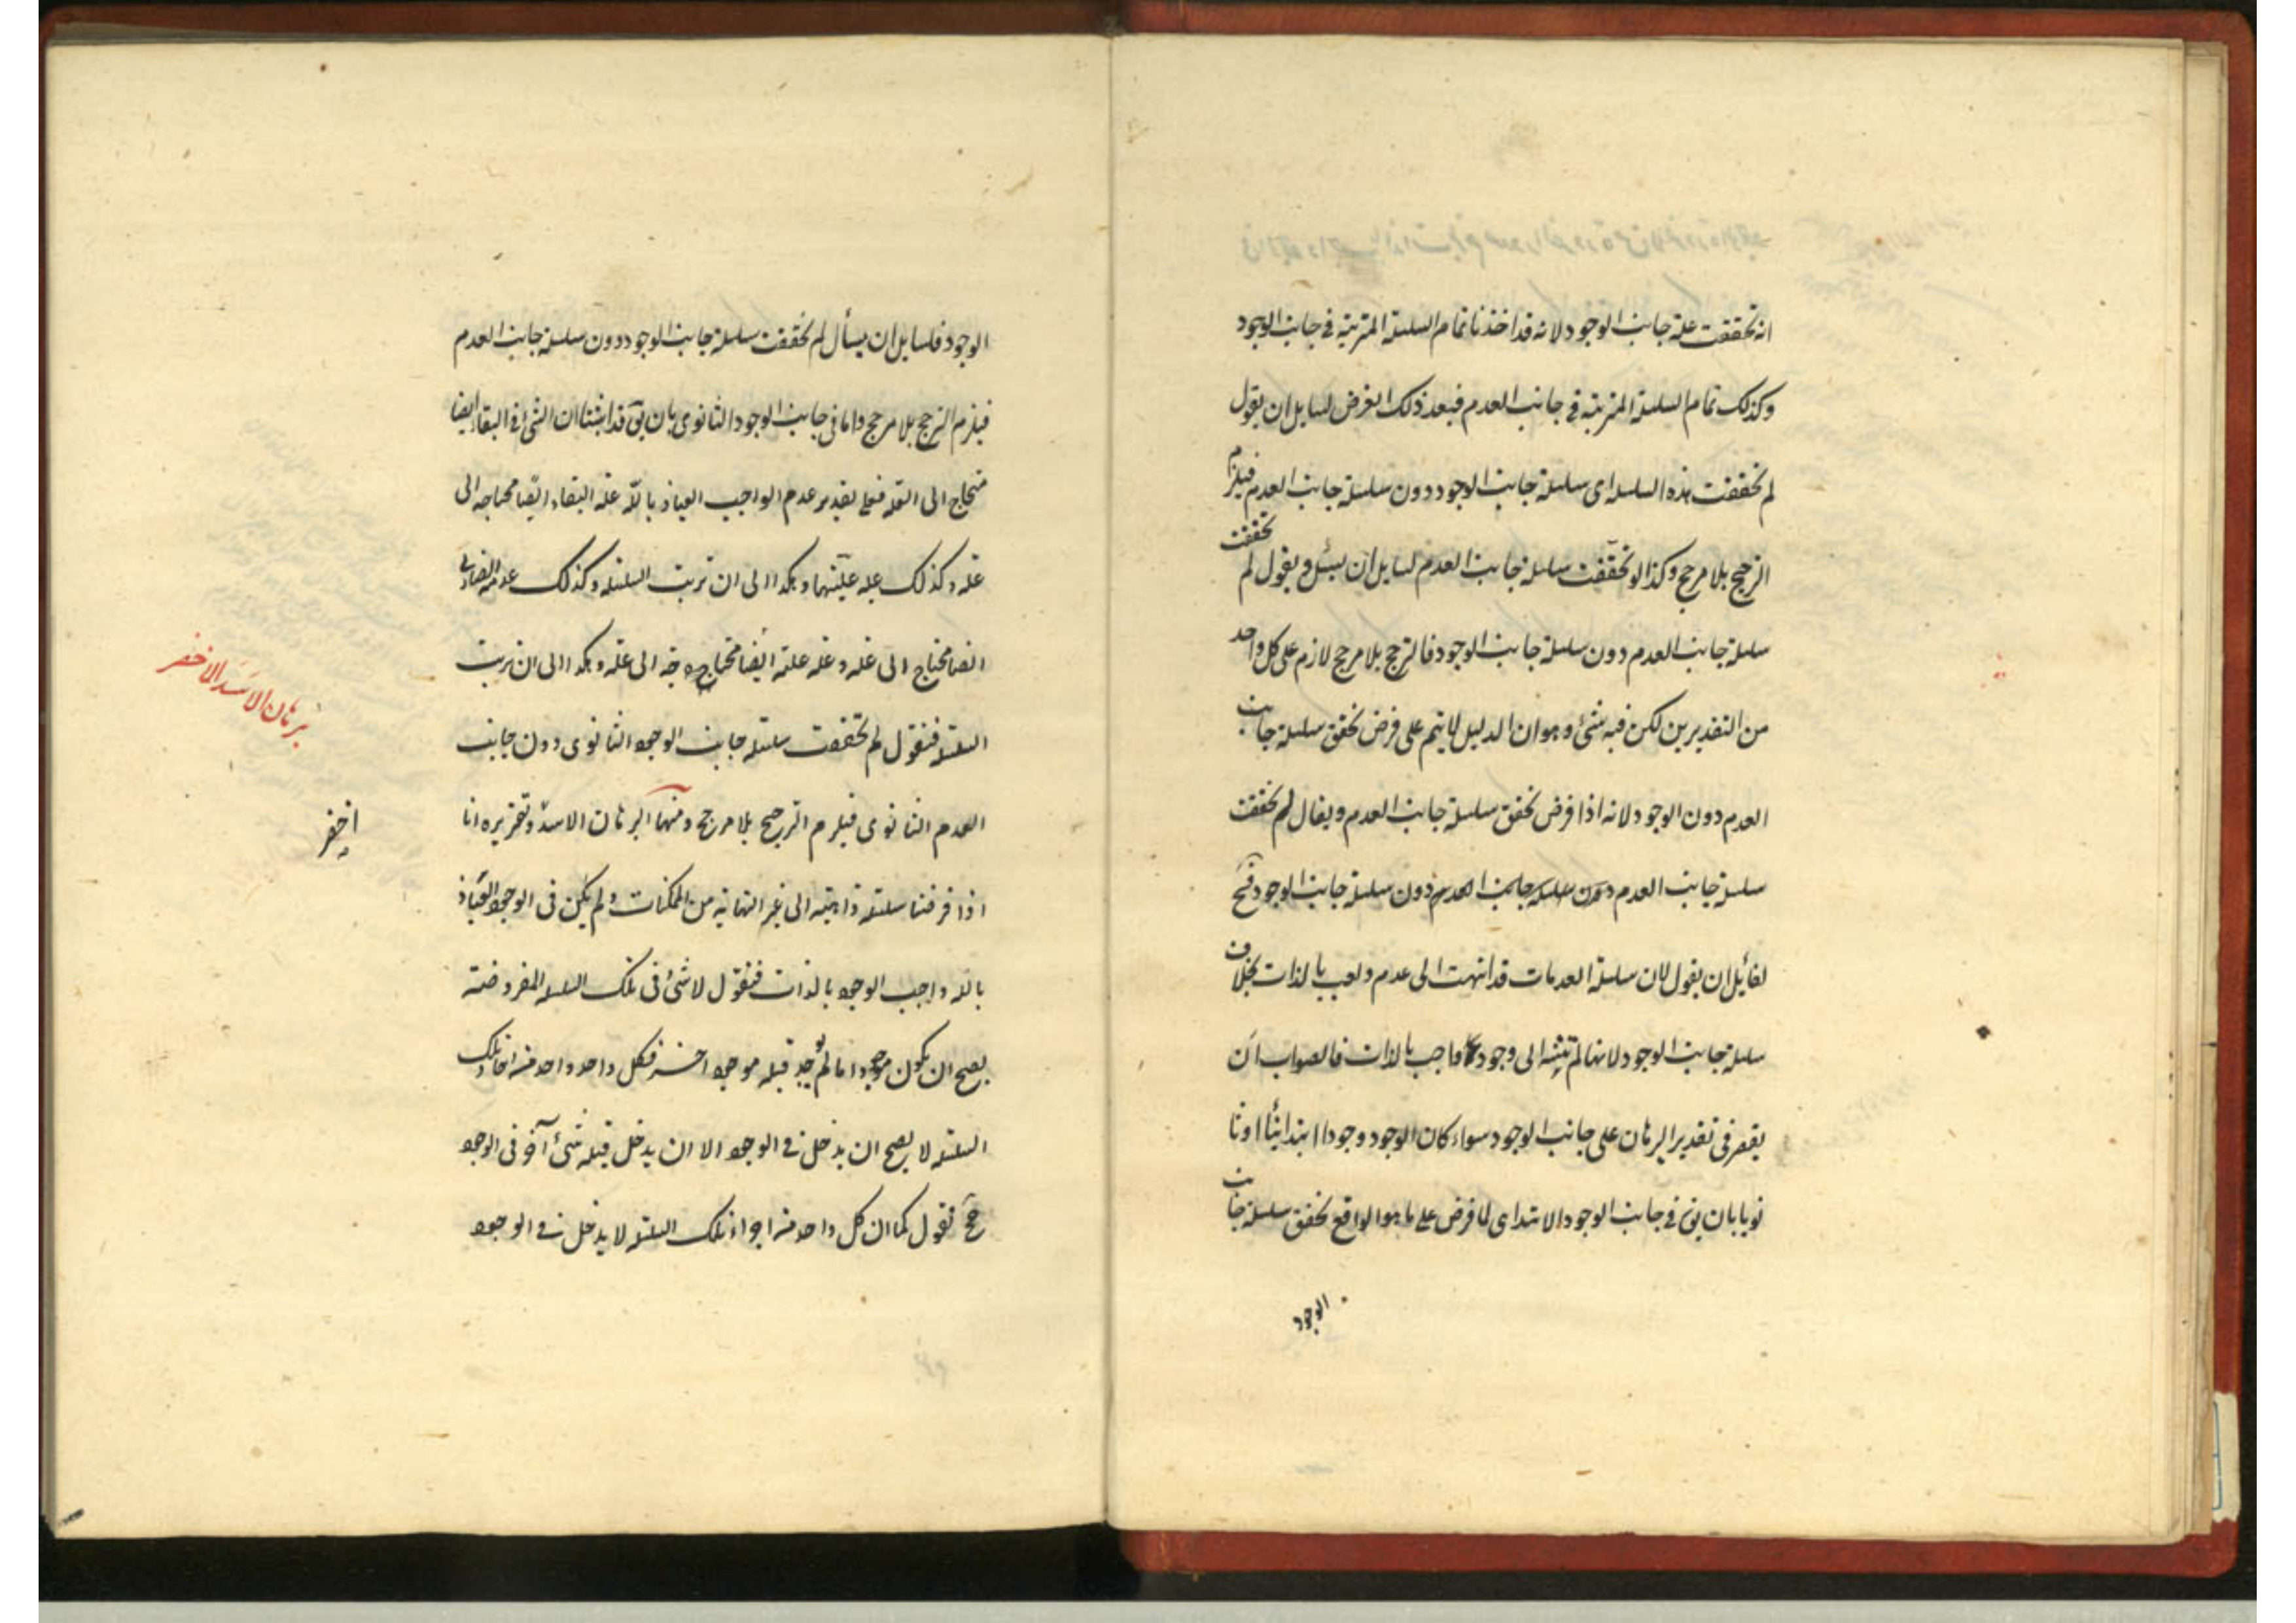 انه تحققت علة جانب الوجود لانه قد اخذنا تمام السلسلة المترتبة في جانب الوجود
وكذلك تمام السلسلة المترتبة في جانب العدم فبعد ذلك الفرض لسايل ان يقول
لم تحققت هذه السلسله اى سلسلة جانب الوجود دون سلسلة جانب العدم فيلزم
الترجيح بلا مرجح وكذا لو تحققت سلسلة جانب العدم لسايل ان يسئل ويقول لم تحققت
سلسلة جانب العدم دون سلسلة جانب الوجود فالترجيح بلا مرجح لازم على كل واحد
من التقديرين لكن فيه شئ وهو ان الدليل لا يتم على فرض تحقق سلسلة جانب
العدم دون الوجود لانه اذا فرض تحقق سلسلة جانب العدم ويقال لم تحققت
سلسلة جانب العدم دون سلسلة جانب الوجود فح
لقائل ان يقول لان سلسلة العدمات قد انتهت الى عدم واجب بالذات بخلاف
سلسلة جانب الوجود لانها لم تنته الى وجود واجب بالذات فالصواب ان
يقصر في تقدير البرهان على جانب الوجود سواء كان الوجود وجودا ابتدائيا او ثا
نويا بان يق في جانب الوجود الابتداى لما فرض على ما هو الواقع تحقق سلسلة جانب
الوجود
الوجود فلسايل ان يسأل لم تحققت سلسلة جانب الوجود دون سلسلة جانب العدم
فيلزم الترجح بلا مرجح واما فى جانب الوجود الثانوى بان يق قد اثبتنا ان الشئ فى البقاء ايضا
محتاج الى العلة فعلى تقدير عدم الواجب العياذ بالله علة البقاء ايضا محتاجه الى
علة وكذلك علة علتها وهكذا الى ان تربت السلسلة وكذلك عدمه
ايضا محتاج الى علة وعلة علته ايضا محتاجة الى علة وهكذا الى ان تربت
السلسلة فنقول لم تحققت سلسلة جانب الوجود الثانوى دون جانب
العدم الثانوى فيلزم الترجيح بلا مرجح ومنها البرهان الاسد وتقريره انا
اذا فرضنا سلسلة ذاهبة الى غير النهاية من الممكنات ولم يكن فى الوجود العياذ
بالله واجب الوجود بالذات فنقول لا شئ فى تلك السلسله المفروضة
يصح ان يكون موجودا ما لم يوجد قبله موجود اخر فكل واحد واحد من احاد تلك
السلسلة لا يصح ان يدخل فى الوجود الا ان يدخل قبله شئ آخر فى الوجود
فح نقول كما ان كل واحد من اجزاء تلك السلسلة لا يدخل فى الوجود
برهان الاسد الاخصر
اخصر